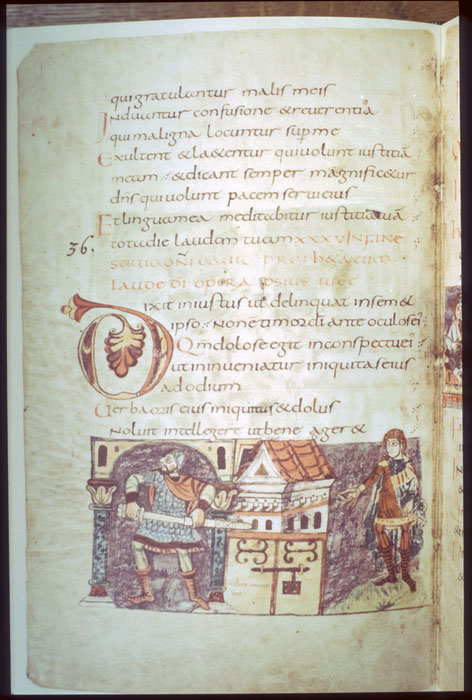 qui gratulantur malis meis
Induantur confusione & reverentia
qui maligna locuntur sup me
Exultent & laetentur qui volunt iustitiā
meam & dicant semper magnificetur
dns qui volunt pacem servi eius
Et lingua mea meditabitur iustitiā tuā
tota die laudem tuam XXXV IN FINE
36.
SERVO DNI DAVID
LAUDE DI OPERA IPSIUS
Dixit iniustus ut delinquat in sem&
ipso Non e timor di ante oculos ei
Qm dolose egit in conspectu ei
ut inveniatur iniquitas eius
ad odium
Verba oris eius iniquitas & dolus
Noluit intellegere ut bene ager&